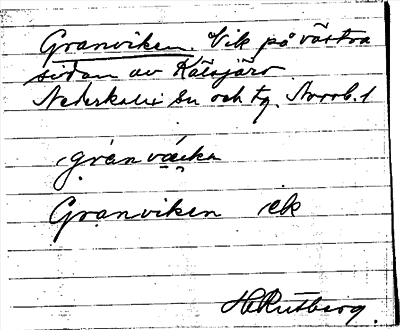 Granviken. Vik på västra
sidan av Kälsjärv
Nederkalix sn och tg. Norrb. l
grànvæ̀ika
Granviken ek
H Rutberg.